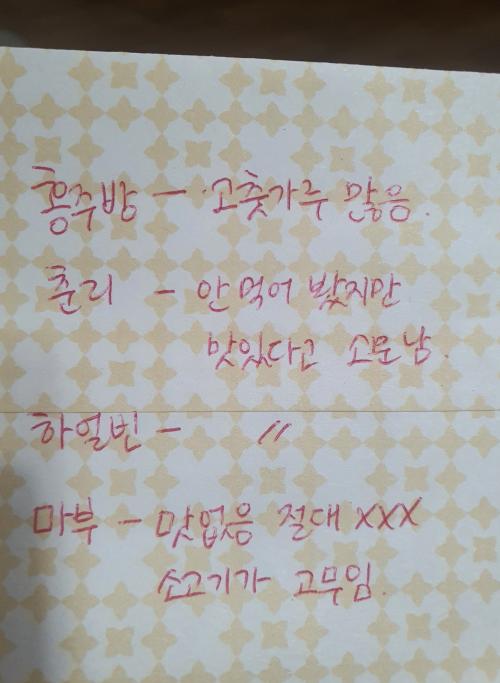 홍주방 - 고춧가루 많음.
춘리 - 안 먹어 봤지만
맛있다고 소문남.
하얼빈 - 〃
마부 - 맛없음 절대 XXX
소고기가 고무임.